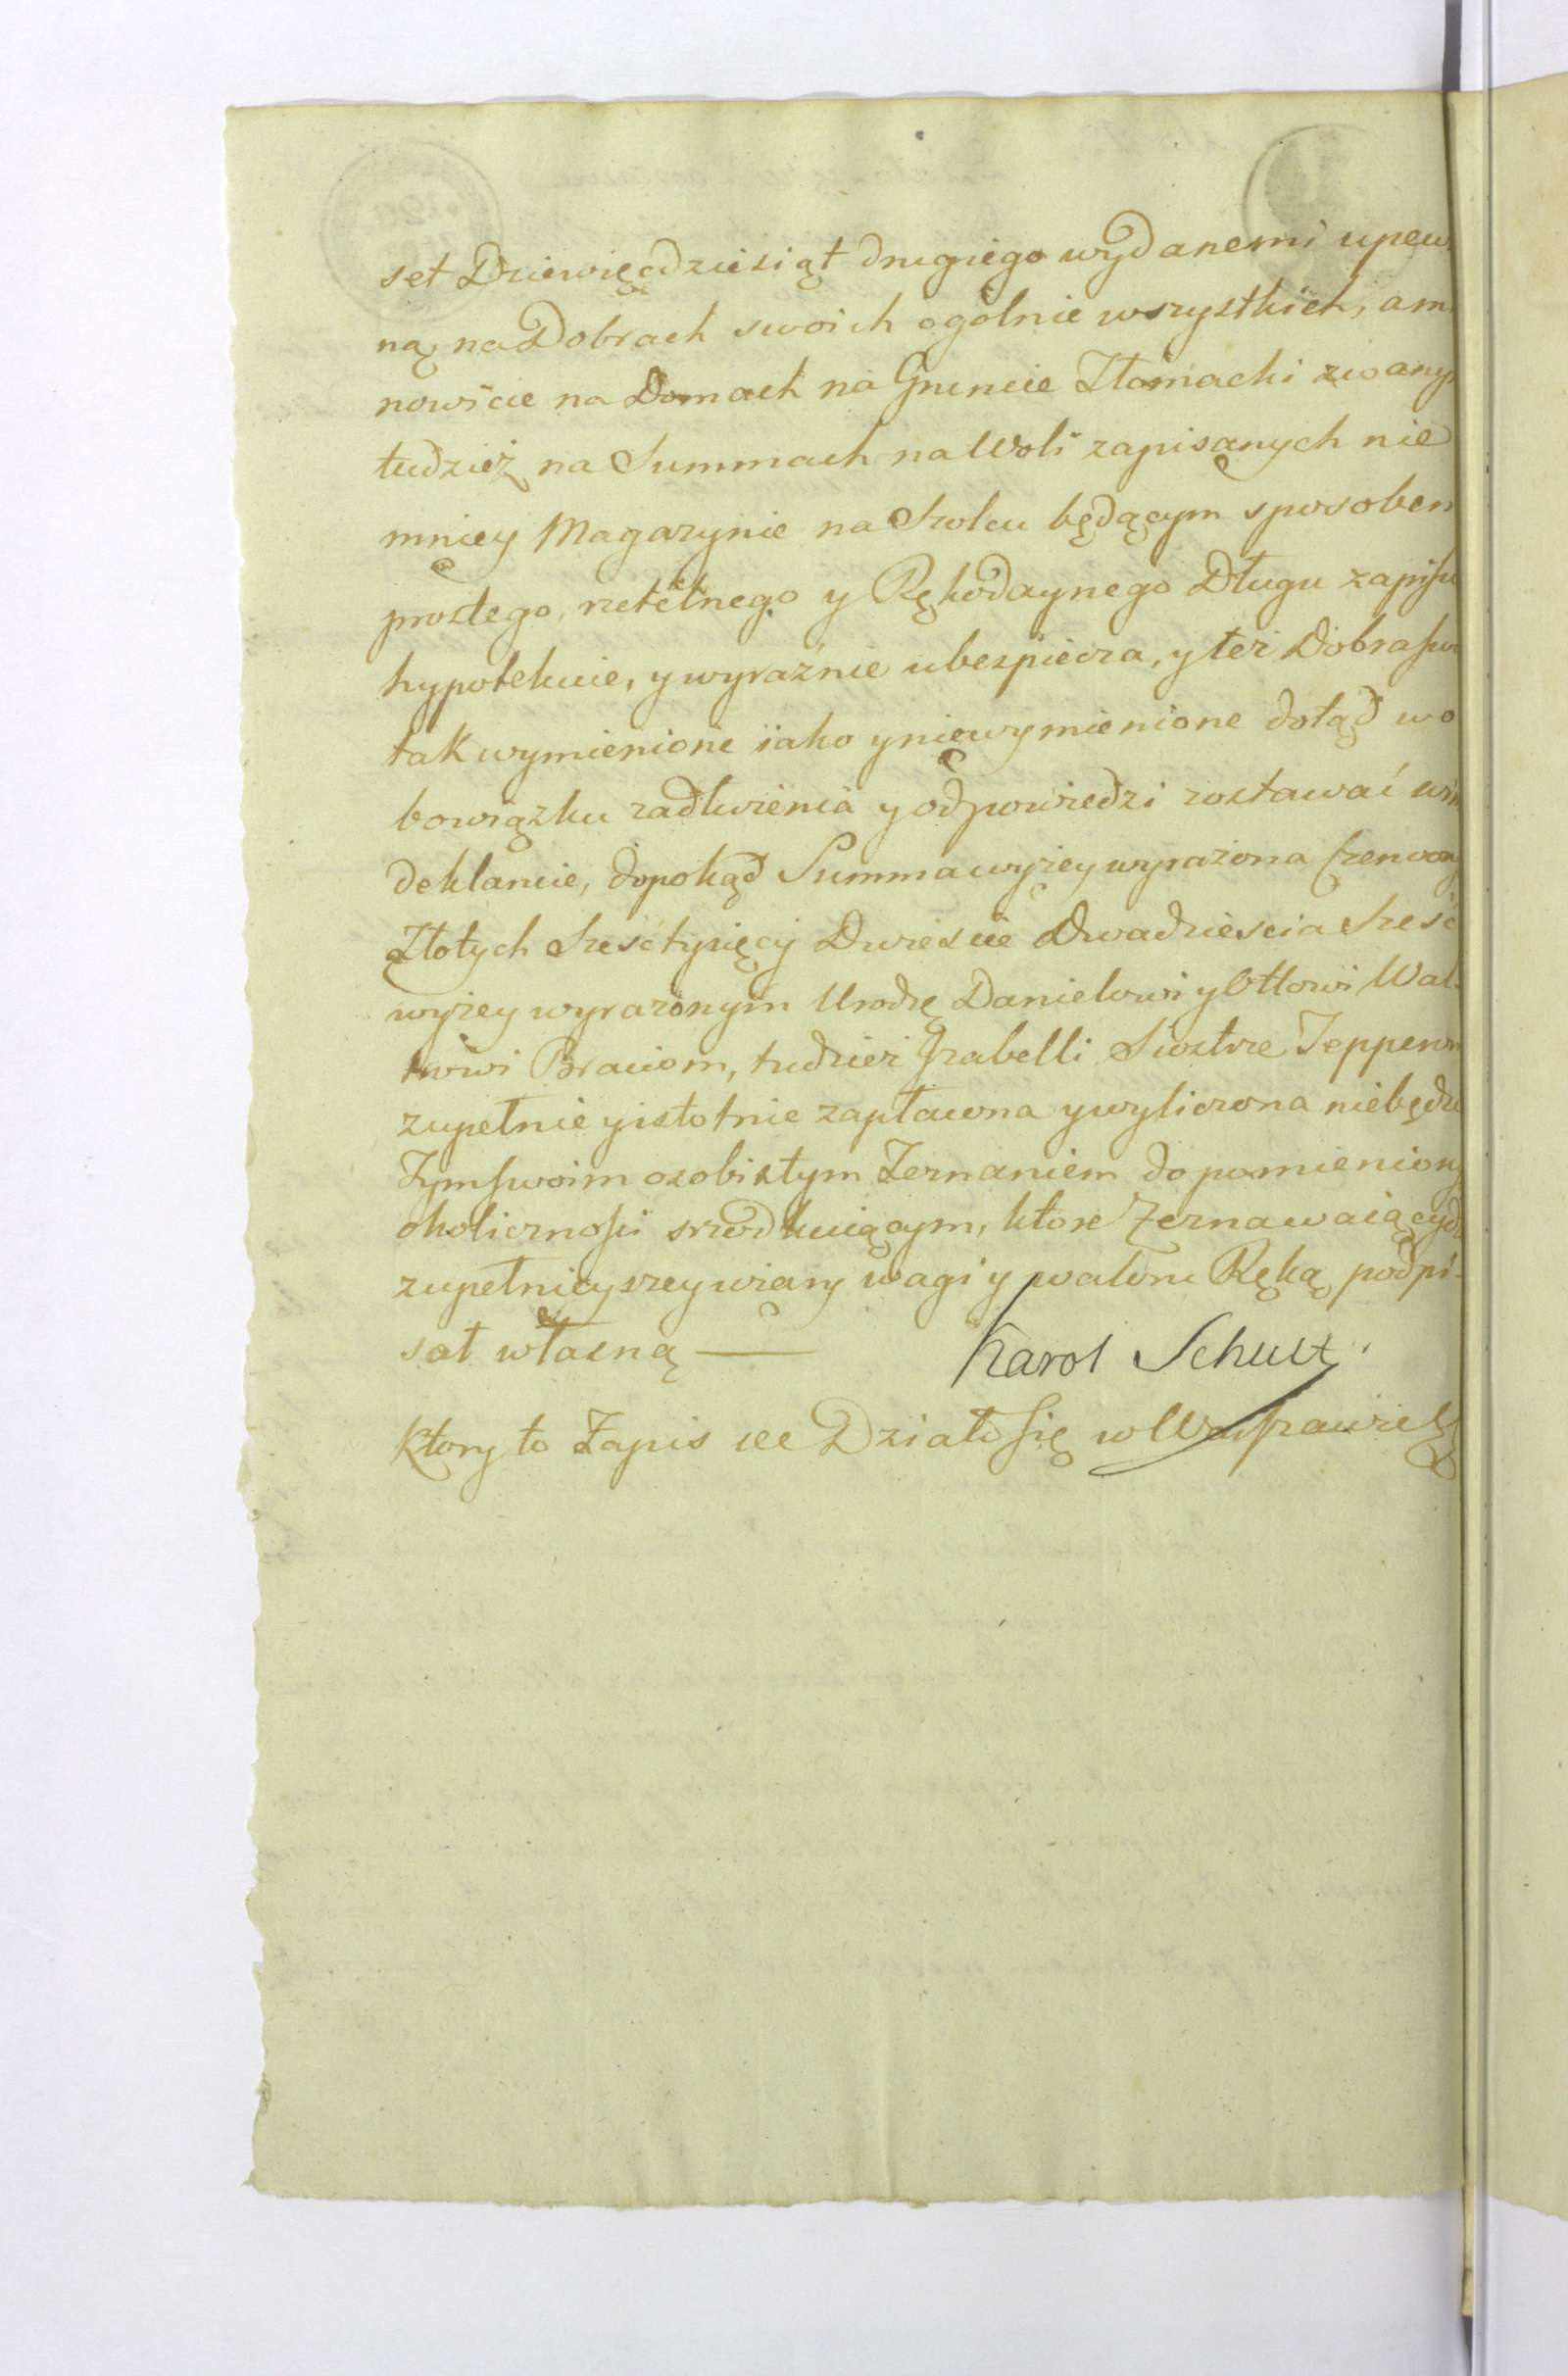 set Dziewięćdziesiąt drugiego wydanemi upew
ną na Dobrach swoich ogólnie wszystkich, a m
nowicie na Domach na Gruncie Tłomacki zwany
tudzież na Summach na Woli zapisanych nie
mniey Magazynie na Solcu będącym sposobem
prostego, rzetelnego y Rękodaynego Długu zapisu
hypotekuie, y wyraźnie ubespiecza, y też Dobra sw
tak wymienione iako y niewymienione dotąd w o
bowiązku zadłużenia y odpowiedzi zostawać win
deklaruie, dopokąd Summa wyżey wyrażona Czerwony
Złotych Sześć tysięcy Dwieście Dwadzieścia Sześć
wyżey wyrażonym Urodzę Danielowi y Ottowi Wal
towi Braciom, tudzież Izabelli Siostrze Tepperom
zupełnie y istotnie zapłacona y wyliczona niebędzie
Tym swoim osobistym Zeznaniem do pomieniony
okoliczności szrodkuiącym, które Zeznawaiący dla
zupełnieyszey wiary wagi y waloru Ręką podpi-
sał własną — Karol Schultz
Ktory to Zapis ec Działo się w Warszawie